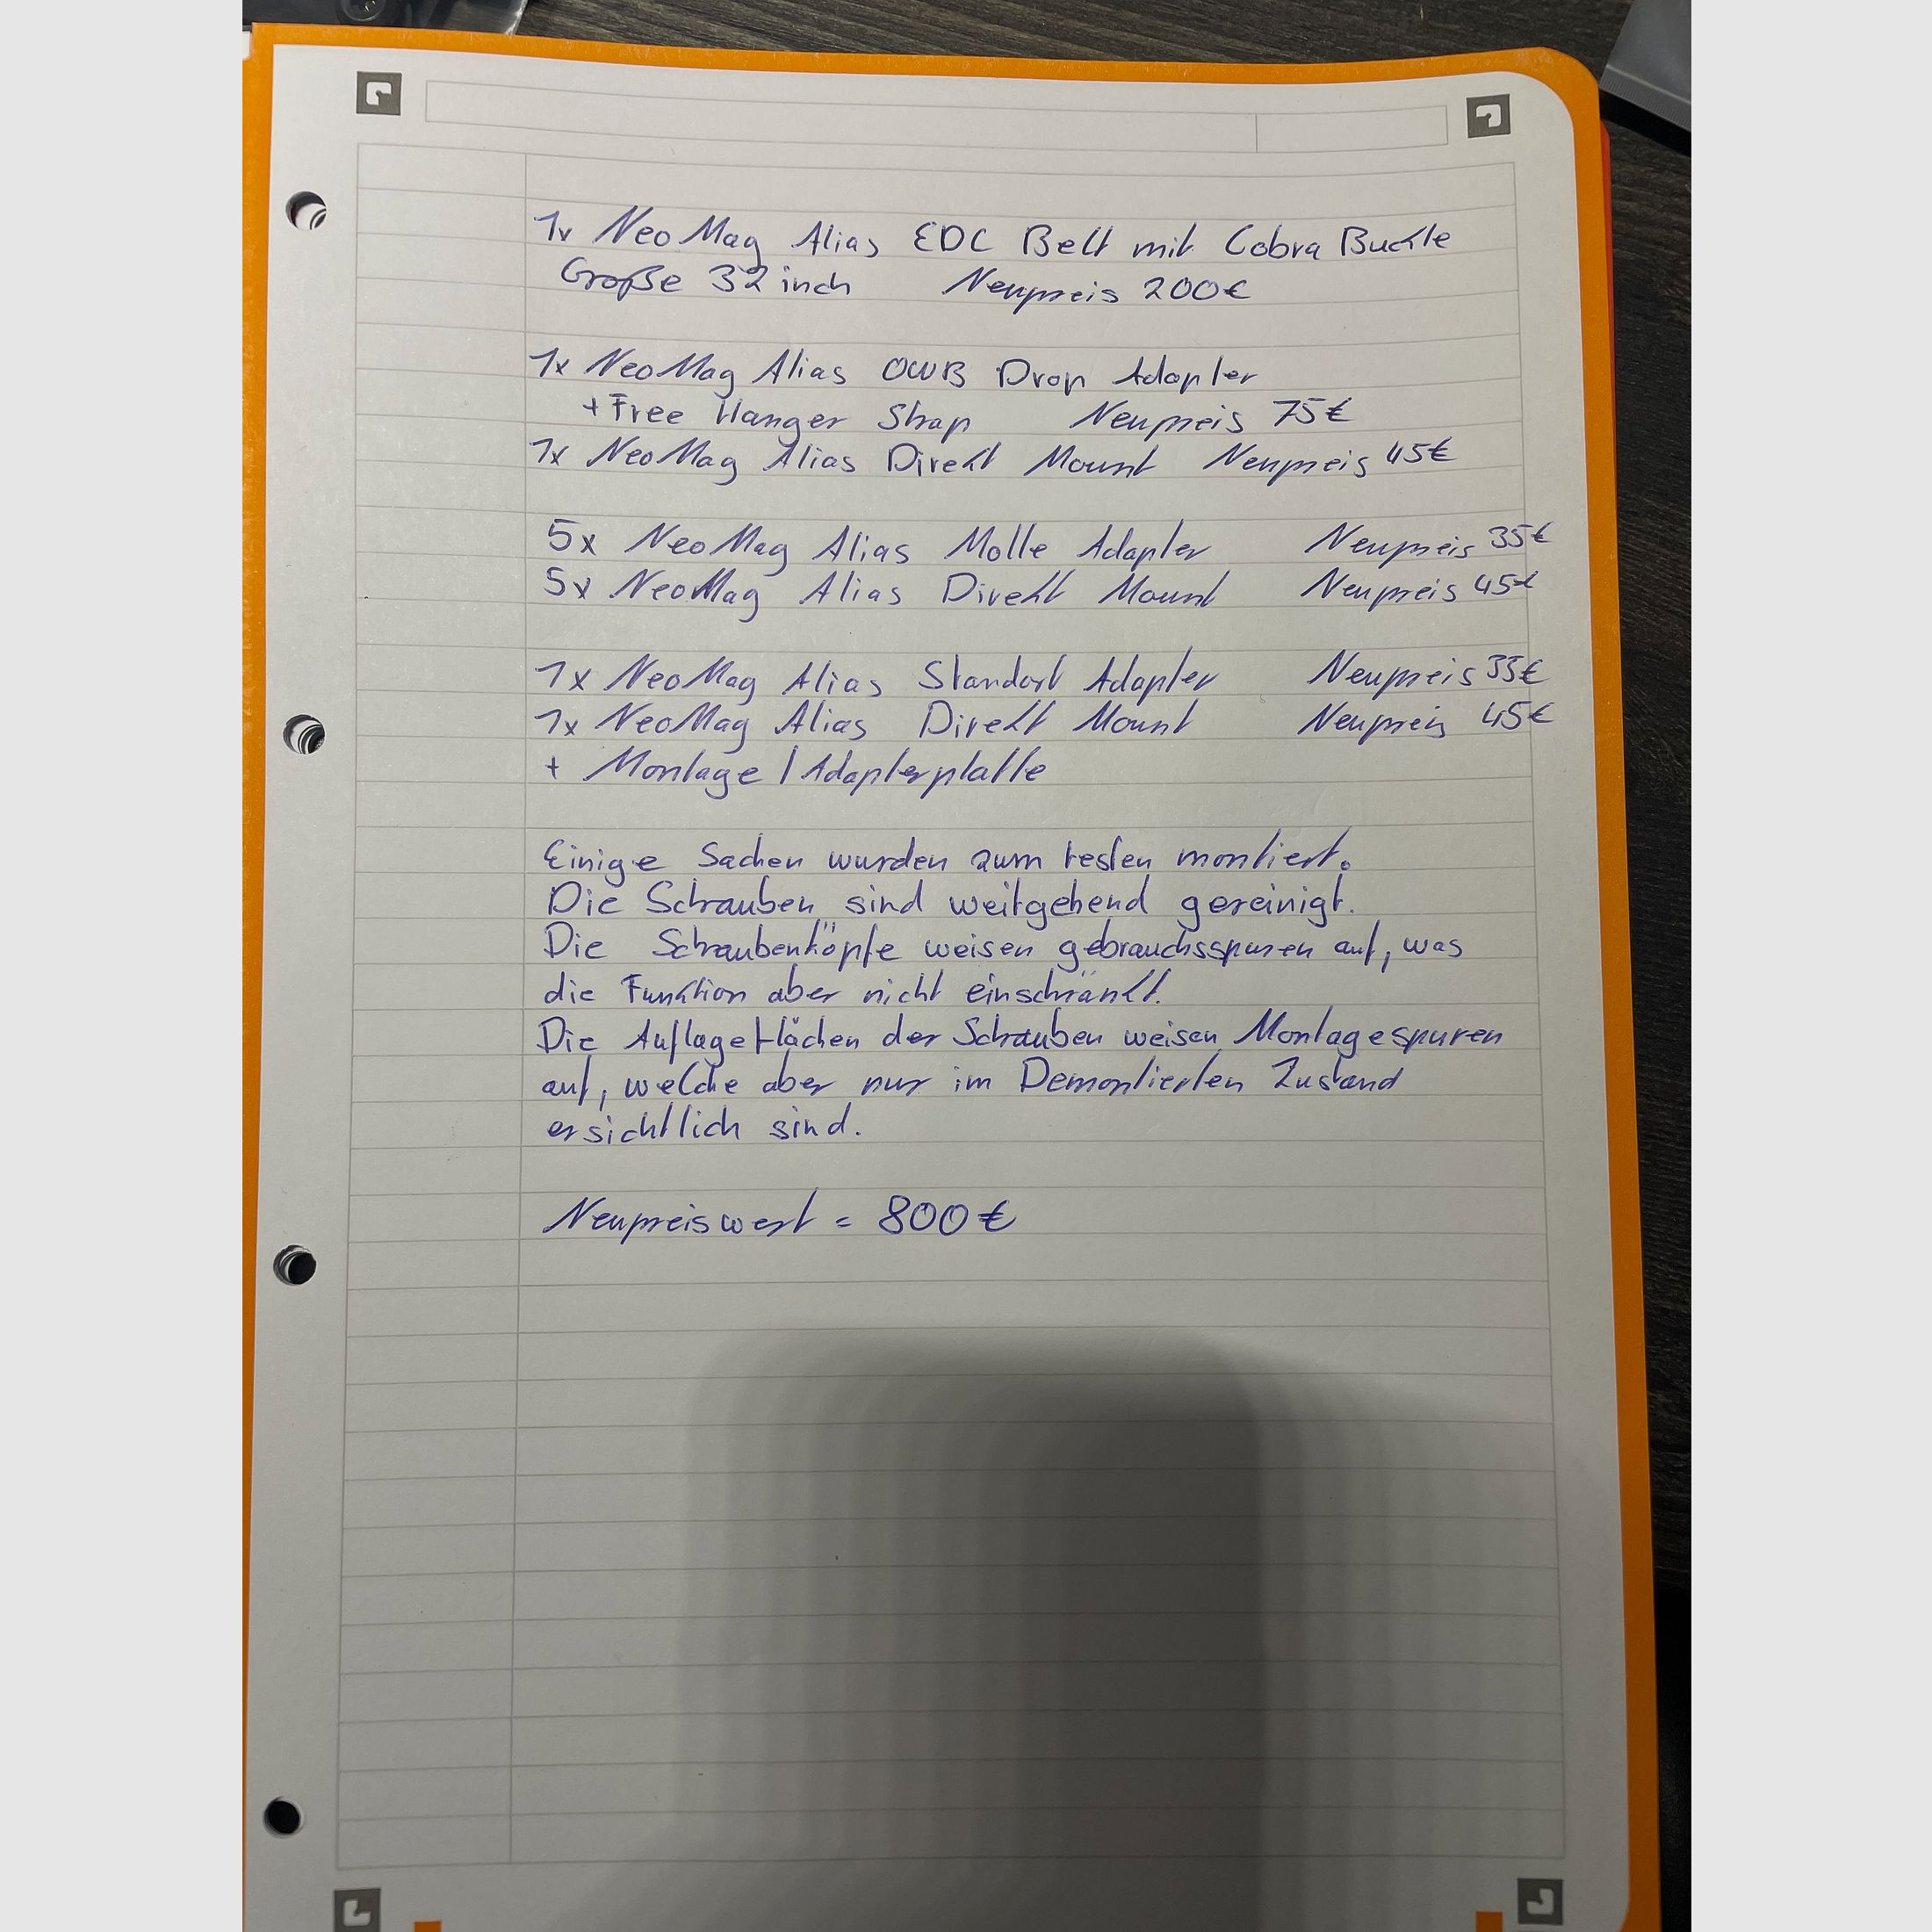 1x NeoMag Alias EDC Belt mit Cobra Buckle
Große 32 inch Neupreis 200€
1x NeoMag Alias OWB Drop Adapter
+Free Hanger Strap Neupreis 75€
1x NeoMag Alias Direkt Mount Neupreis 45€
5x NeoMag Alias Molle Adapter Neupreis 35€
5x NeoMag Alias Direkt Mount Neupreis 45€
1x NeoMag Alias Standart Adapter Neupreis 33€
1x NeoMag Alias Direkt Mount Neupreis 45€
+ Montage / Adapterplatte
Einige Sachen wurden zum testen montiert.
Die Schrauben sind weitgehend gereinigt.
Die Schraubenköpfe weisen gebrauchsspuren auf, was
die Funktion aber nicht einschränkt.
Die Auflageflächen der Schrauben weisen Montagespuren
auf, welche aber nur im Demontierten Zustand
ersichtlich sind.
Neupreiswert = 800€